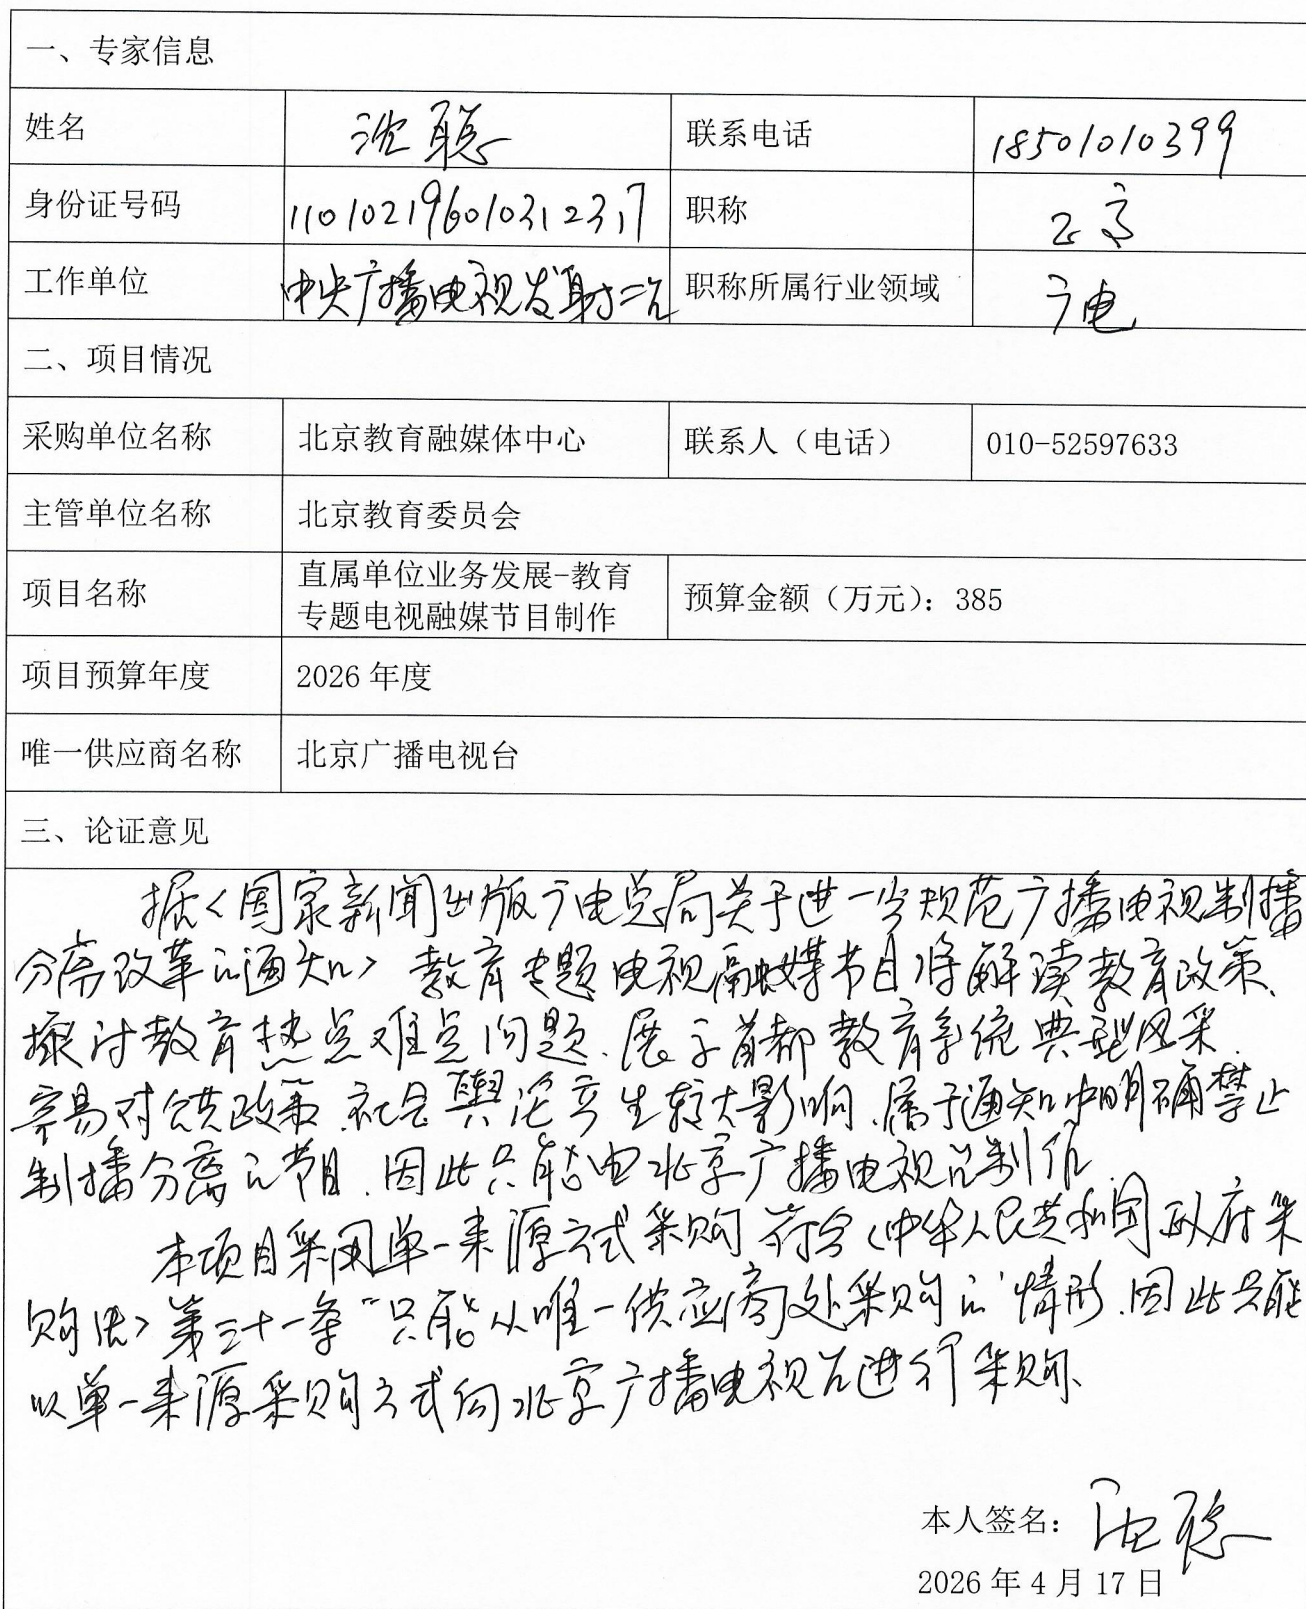 一、专家信息
姓名 沈聪 联系电话 18501010399
身份证号码 110102196010312317 职称 正高
工作单位 中央广播电视发射二台 职称所属行业领域 广电
二、项目情况
采购单位名称 北京教育融媒体中心 联系人（电话） 010-52597633
主管单位名称 北京教育委员会
项目名称 直属单位业务发展-教育 预算金额（万元）：385
专题电视融媒节目制作
项目预算年度 2026 年度
唯一供应商名称 北京广播电视台
三、论证意见
据《国家新闻出版广电总局关于进一步规范广播电视制播
分离改革的通知》教育专题电视融媒节目将解读教育政策、
探讨教育热点难点问题、展示首都教育系统典型风采、
容易对公共政策、社会舆论产生较大影响、属于通知中明确禁止
制播分离的节目、因此只能由北京广播电视台制作、
本项目采用单一来源方式采购符合《中华人民共和国政府采
购法》第三十一条"只能从唯一供应商处采购的"情形、因此只能
以单一来源采购方式向北京广播电视台进行采购、
本人签名：沈聪
2026 年 4 月 17 日